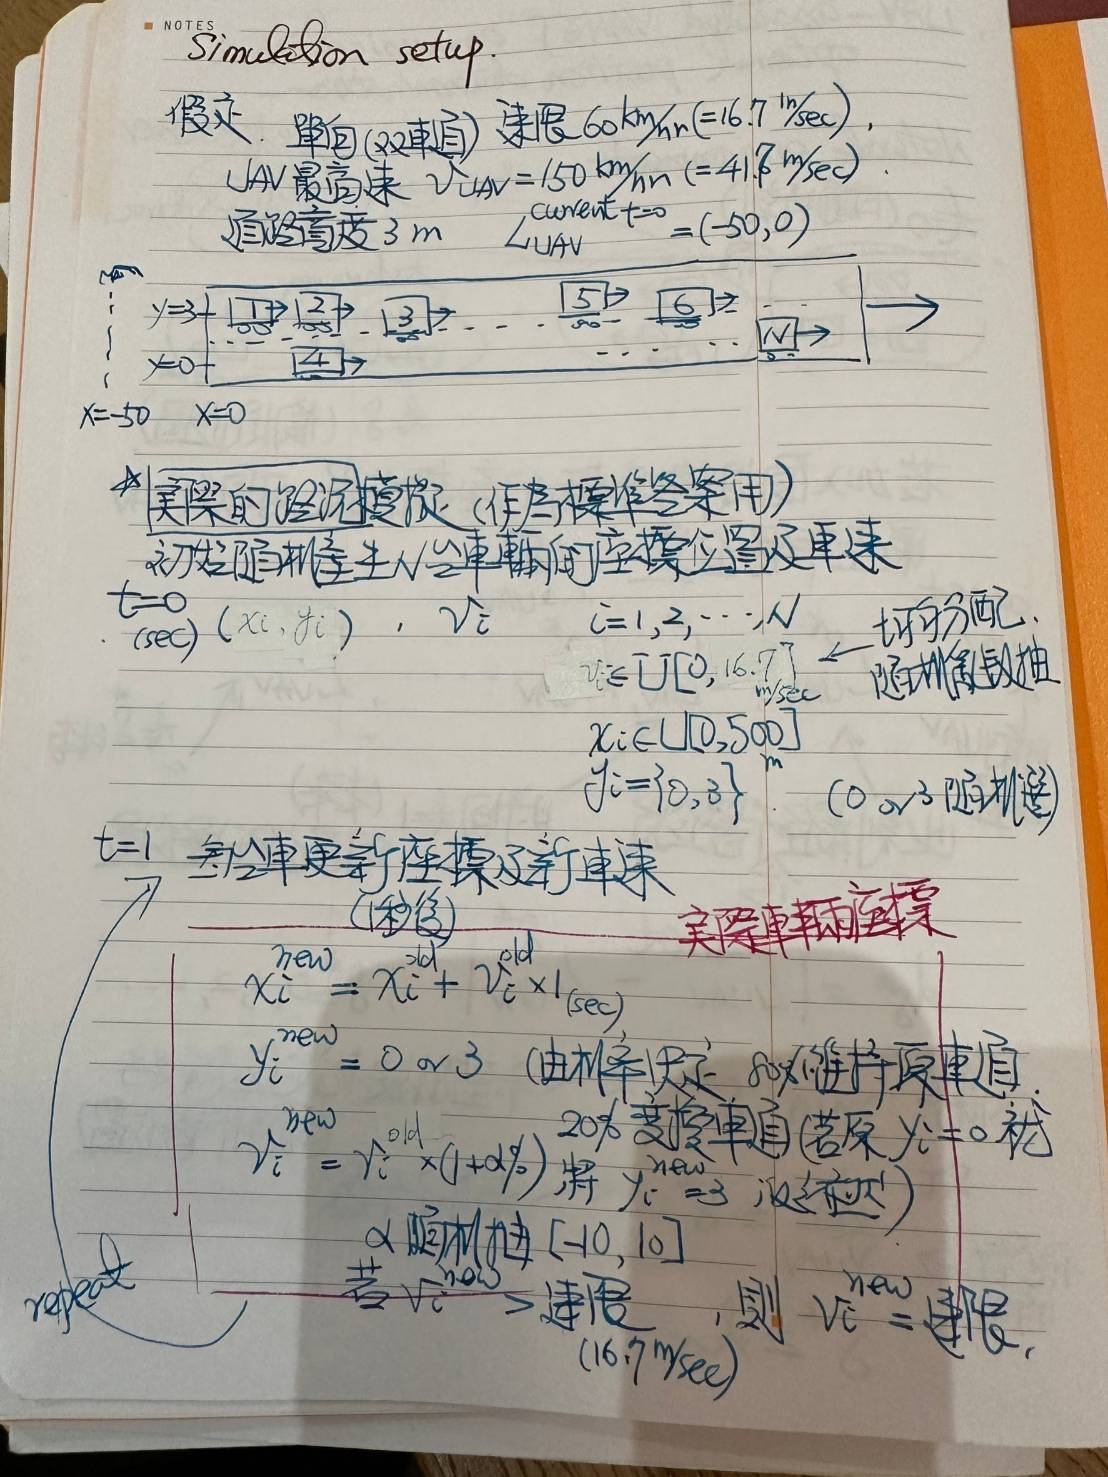 NOTES
Simulation setup.
假定. 單向(双車道) 速限 60 km/hr (=16.7 m/sec),
UAV 最高速 VUAV = 150 km/hr (= 41.7 m/sec).
道路高度 3 m LUAV^current t=0 = (-50, 0)
y=3 1 2 3 5 6
y=0 4 N
x=-50 x=0
* 実際的路況模擬 (作為標準答案用)
初始隨机產生 N 台車輛的座標位置及車速
t=0
(sec) (xi, yi), vi i=1, 2, ..., N
vi ∈ U[0, 16.7] m/sec ← 均勻分配.
隨机亂數抽
xi ∈ U[0, 500] m
yi = {0, 3} (0 or 3 隨机選)
t=1 每台車更新座標及新車速
(1秒後) 実際車輛座標
xi^new = xi^old + vi^old × 1 (sec)
yi^new = 0 or 3 (由机率決定 80% 維持原車道.
20% 變換車道 (若原 yi=0 就
vi^new = vi^old × (1+α%) 將 yi^new = 3
α 隨机抽 [-10, 10]
repeat 若 vi^new > 速限, 則 vi^new = 速限,
(16.7 m/sec)